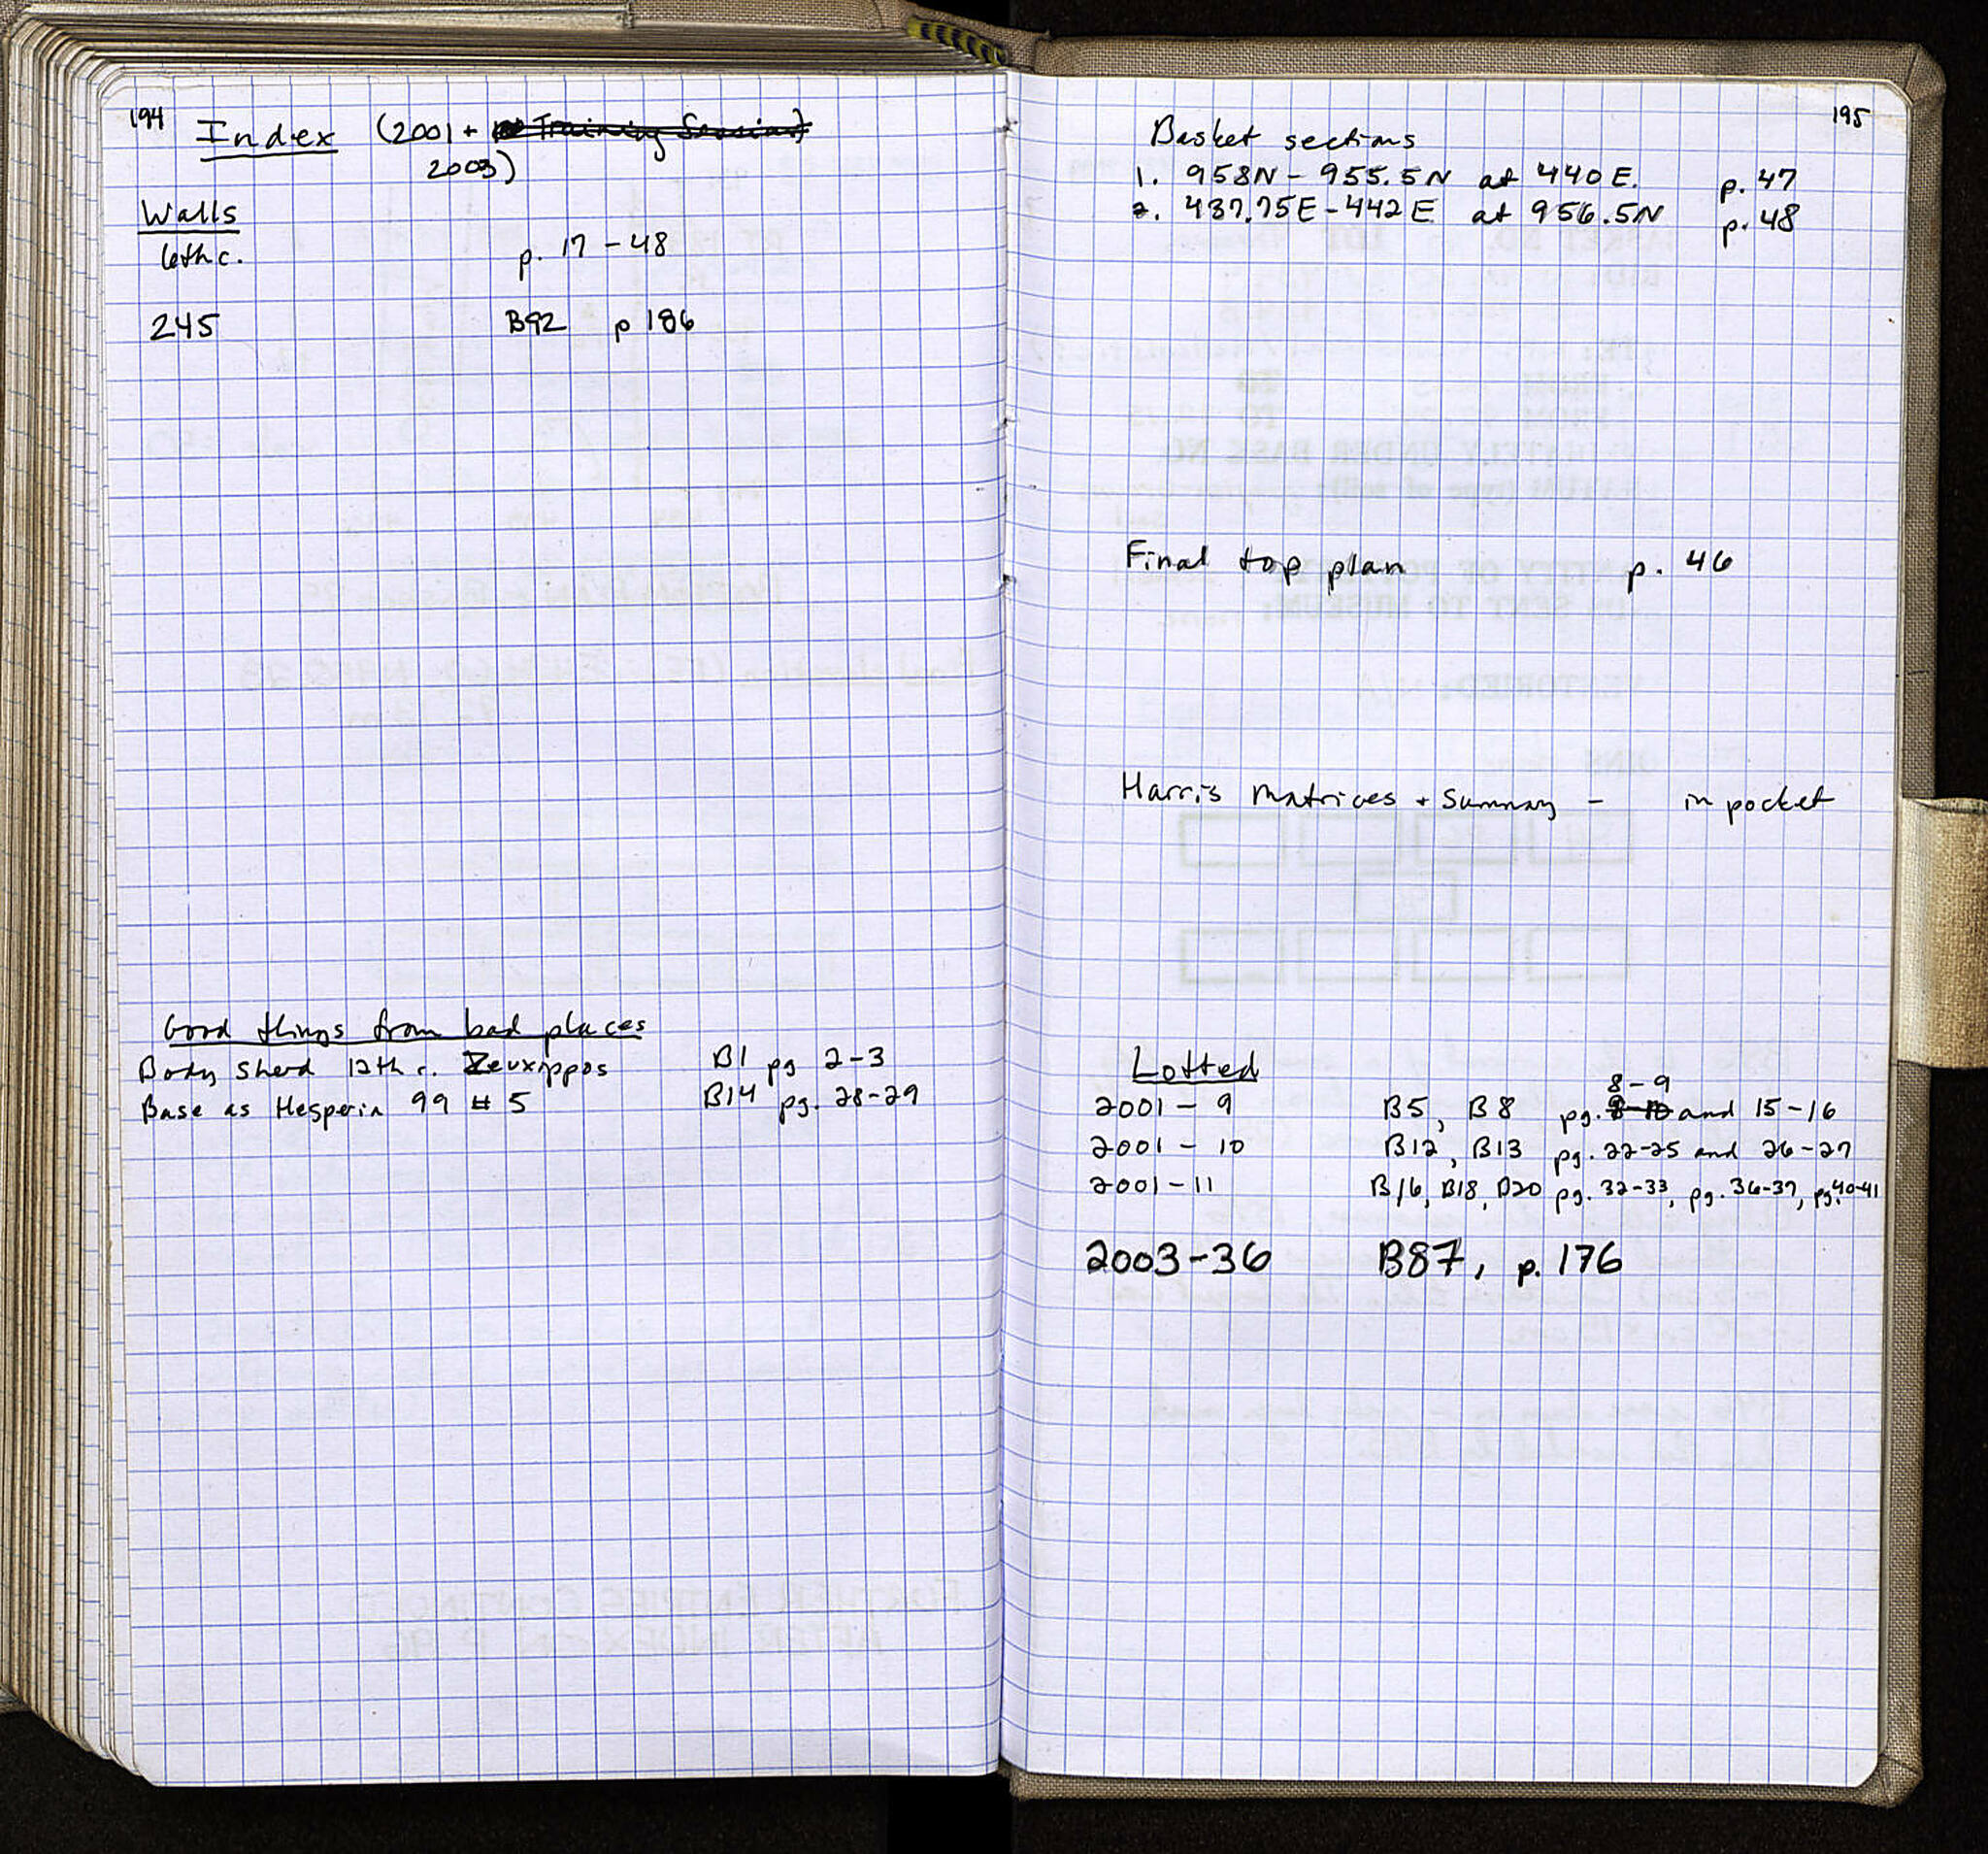 194
Index (2001 + Training Session)
2003)
Walls
6th c. p. 17 - 48
245 B92 p 186
Good things from bad places
Body Sherd 12th c. Zeuxippos B1 pg 2-3
Base as Hesperia 99 # 5 B14 pg. 28-29
195
Basket sections
1. 958N - 955.5N at 440 E. p. 47
2. 437.75E - 442 E at 956.5N p. 48
Final top plan p. 46
Harris Matrices + Summary - in pocket
Lotted
8-9
2001 - 9 B5, B8 pg. 8-10 and 15-16
2001 - 10 B12, B13 pg. 22-25 and 26-27
2001 - 11 B16, B18, B20 pg. 32-33, pg. 36-37, pg. 40-41
2003-36 B87, p. 176